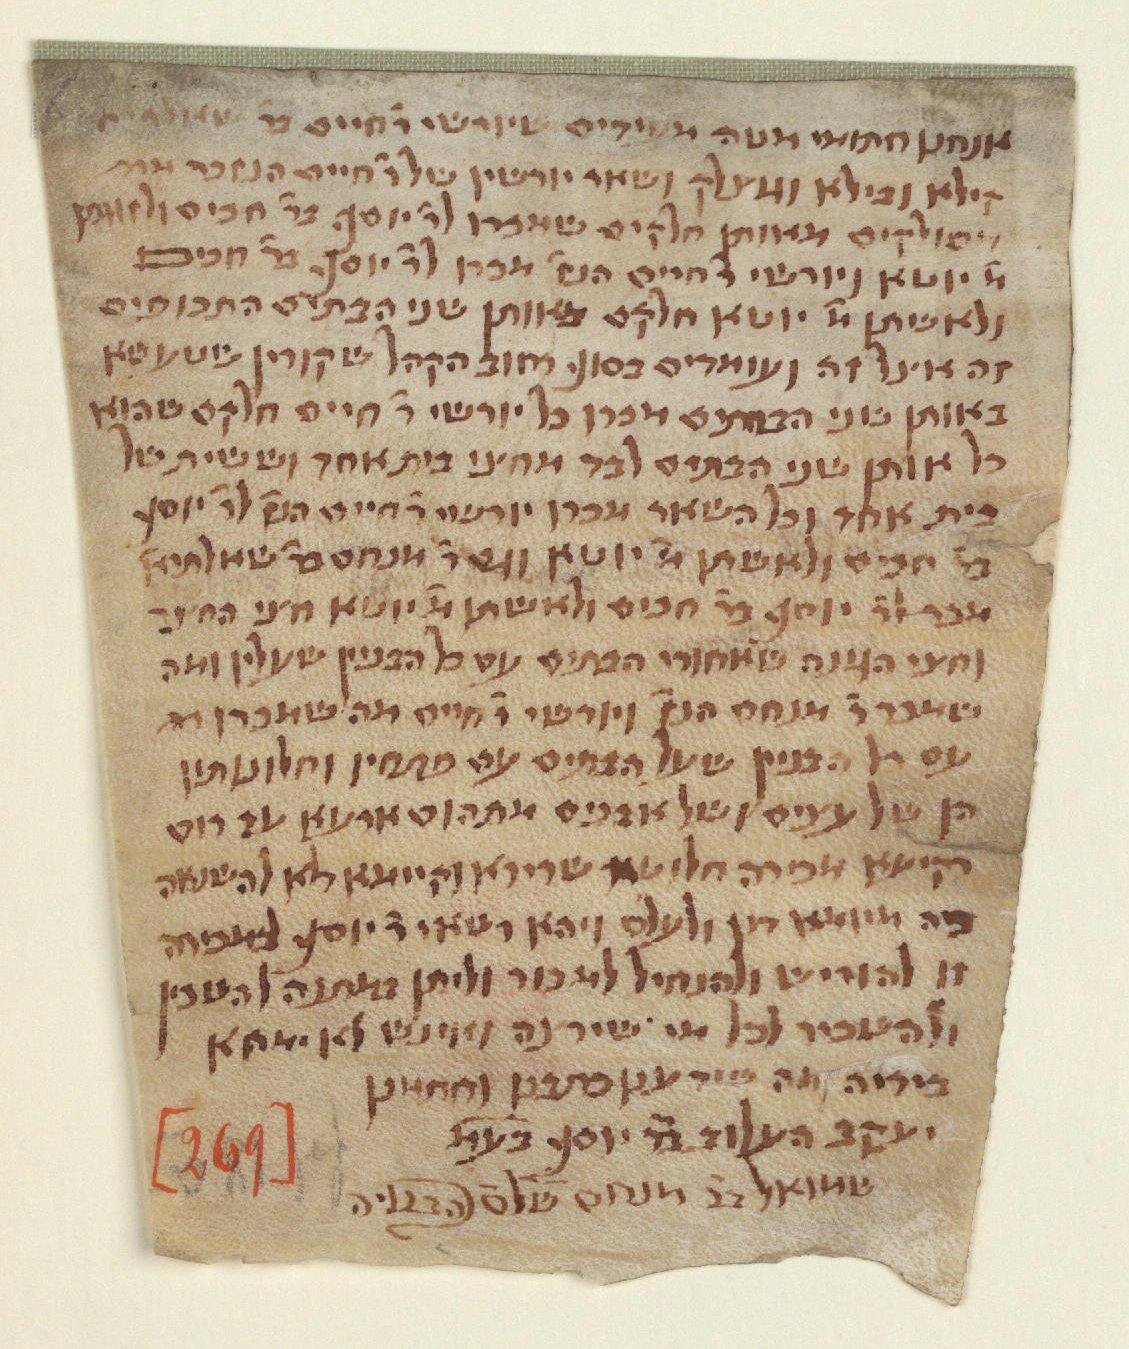 אנחנו חתומי מטה מעידים שיורשי ר̇ חיים בר̇
וכילא ושאר יורשין של ר̇ חיים הנזכר
מסולקים מאותן חלקים שמכרו לר̇ יוסף בר̇ חכים ולזוגתו
מ̇ יוטא ויורשי ר̇ חיים הנז̇ מכרו לר̇ יוסף בר̇ חכים
ולאשתו מ̇ יוטא חלקם מאותן שני הבתים הסמוכים
זה אצל זה ועומדים בסוף רחוב הקהל שקורין
באותן שני הבתים מכרו כל יורשי ר̇ חיים חלקם שהוא
כל אותן שני הבתים לבד מחצי בית אחד וששית של
בית אחד וכל השאר מכרו יורשי ר̇ חיים הנז̇ לר̇ יוסף
בר̇ חכים ולאשתו מ̇ יוטא וגם ר̇ מנחם בר̇ שאלתיאל
מכר לר̇ יוסף בר̇ חכים ולאשתו מ̇ יוטא חצי החצר
וחצי הגנה שאחורי הבתים עם כל הבנין שעליו ומה
שמכר ר̇ מנחם הנז̇ ויורשי ר̇ חיים מה שמכרו
עם כל הבנין שעל הבתים עם פתחין וחלונותין
הן של עצים ושל אבנים מתהום ארעא עד רום
רקיעא מכירה חלוטה שרירא וקיימא דלא להשנאה
בה מיומא דנן ולעלם ויהא רשאי ר̇ יוסף במכירה
זו להוריש ולהנחיל למכור וליתן במתנה להשכין
ולהשכיר לכל מי שירצה ואינש לא ימחא
בידיה מה שידענו כתבנו וחתמנו
יעקב העלוב בר̇ יוסף
שמואל בר̇ מנחם
[269]